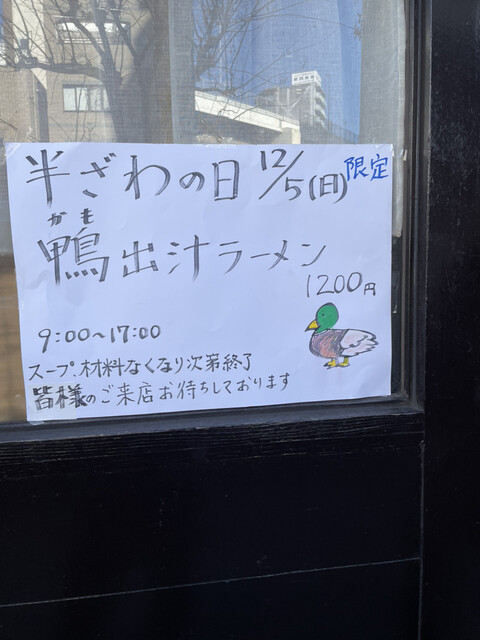 半ざわの日 12/5(日) 限定
かも
鴨出汁ラーメン
1200円
9:00〜17:00
スープ.材料なくなり次第終了
皆様のご来店お待ちしております